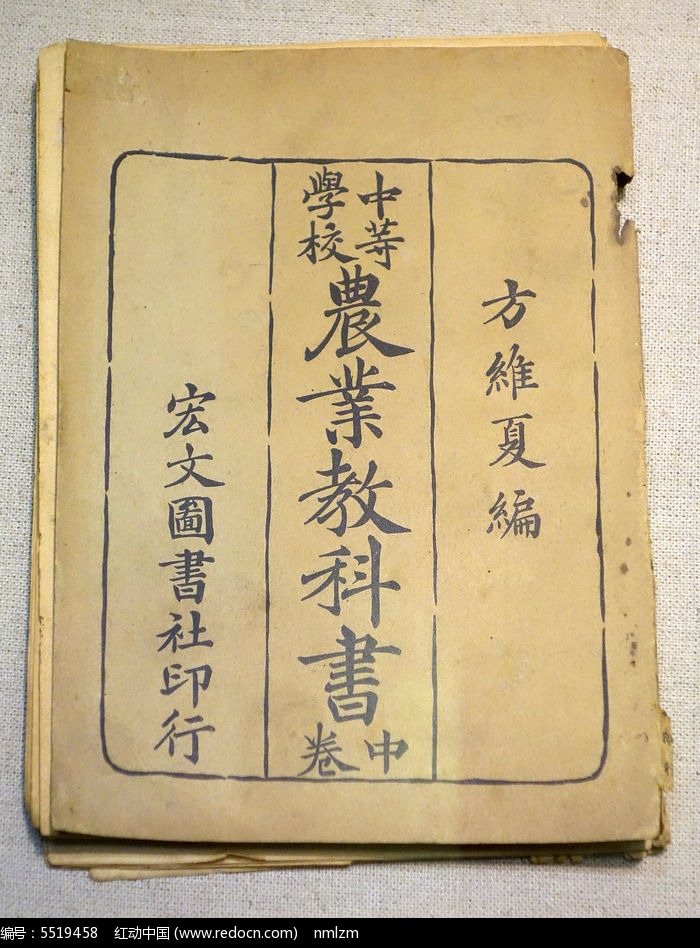 方維夏編
中等
學校
農業教科書
中
卷
宏文圖書社印行
编号：5519458 红动中国 (www.redocn.com) nmlzm